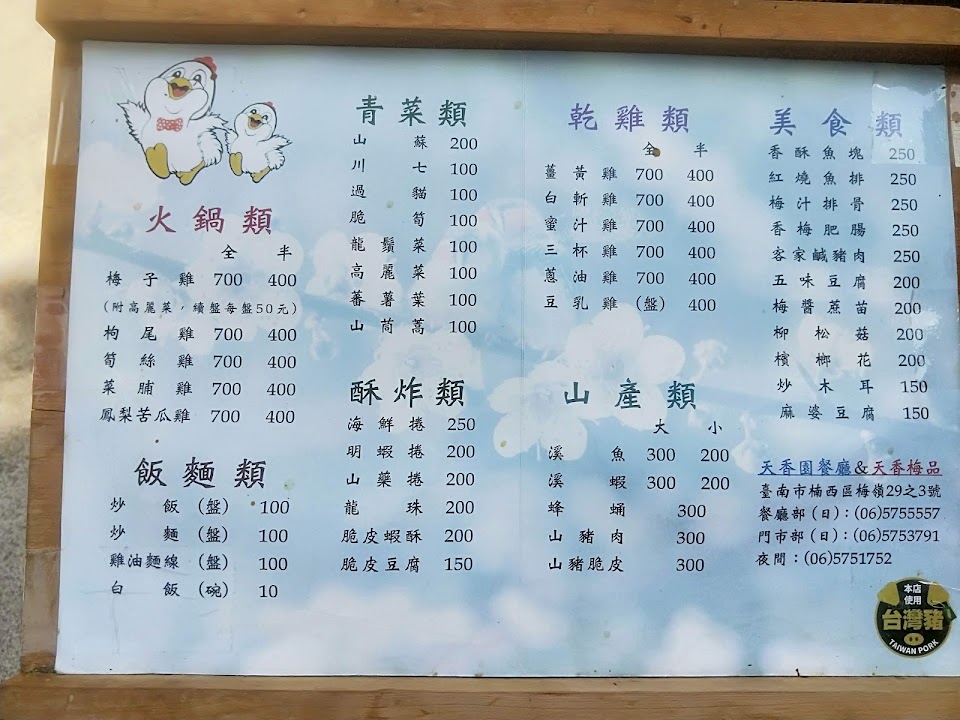 火鍋類
全 半
梅子雞 700 400
(附高麗菜,續盤每盤50元)
枸尾雞 700 400
筍絲雞 700 400
菜脯雞 700 400
鳳梨苦瓜雞 700 400
飯麵類
炒飯(盤) 100
炒麵(盤) 100
雞油麵線(盤) 100
白飯(碗) 10
青菜類
山蘇 200
川七 100
過貓 100
脆筍 100
龍鬚菜 100
高麗菜 100
蕃薯葉 100
山茼蒿 100
酥炸類
海鮮捲 250
明蝦捲 200
山藥捲 200
龍珠 200
脆皮蝦酥 200
脆皮豆腐 150
乾雞類
全 半
薑黃雞 700 400
白斬雞 700 400
蜜汁雞 700 400
三杯雞 700 400
蔥油雞 700 400
豆乳雞(盤) 400
山產類
大 小
溪魚 300 200
溪蝦 300 200
蜂蛹 300
山豬肉 300
山豬脆皮 300
美食類
香酥魚塊 250
紅燒魚排 250
梅汁排骨 250
香梅肥腸 250
客家鹹豬肉 250
五味豆腐 200
梅醬蔗苗 200
柳松菇 200
檳榔花 200
炒木耳 150
麻婆豆腐 150
天香園餐廳&天香梅品
臺南市楠西區梅嶺29之3號
餐廳部(日):(06)5755557
門市部(日):(06)5753791
夜間:(06)5751752
本店
使用
台灣豬
TAIWAN PORK